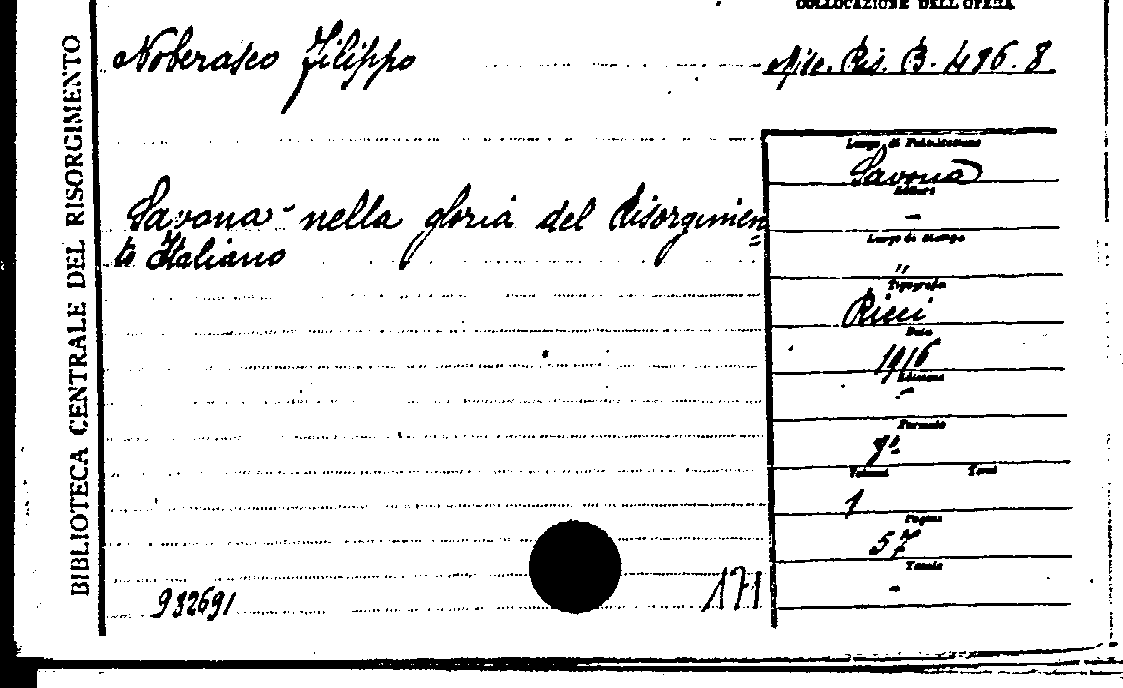 COLLOCAZIONE DELL'OPERA
Noberasco Filippo
Misc. Ris. B. 496. 8
BIBLIOTECA CENTRALE DEL RISORGIMENTO
Savona nella gloria del Risorgimen=
to Italiano
Luogo di Pubblicazione
Savona
Editore
–
Luogo di stampa
"
Tipografia
Ricci
Data
1916
Edizione
–
Formato
Volumi Tomi
1
Pagine
57
Tavole
-
932691
171